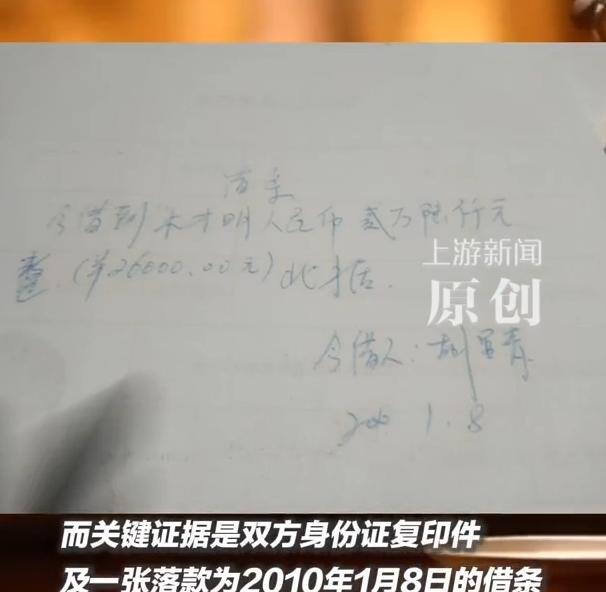 借条
今借到 木才明人民币 贰万陆仟元
整.(¥26000.00元)此据.
上游新闻
原创
今借人:胡
1.8
而关键证据是双方身份证复印件
及一张落款为2010年1月8日的借条